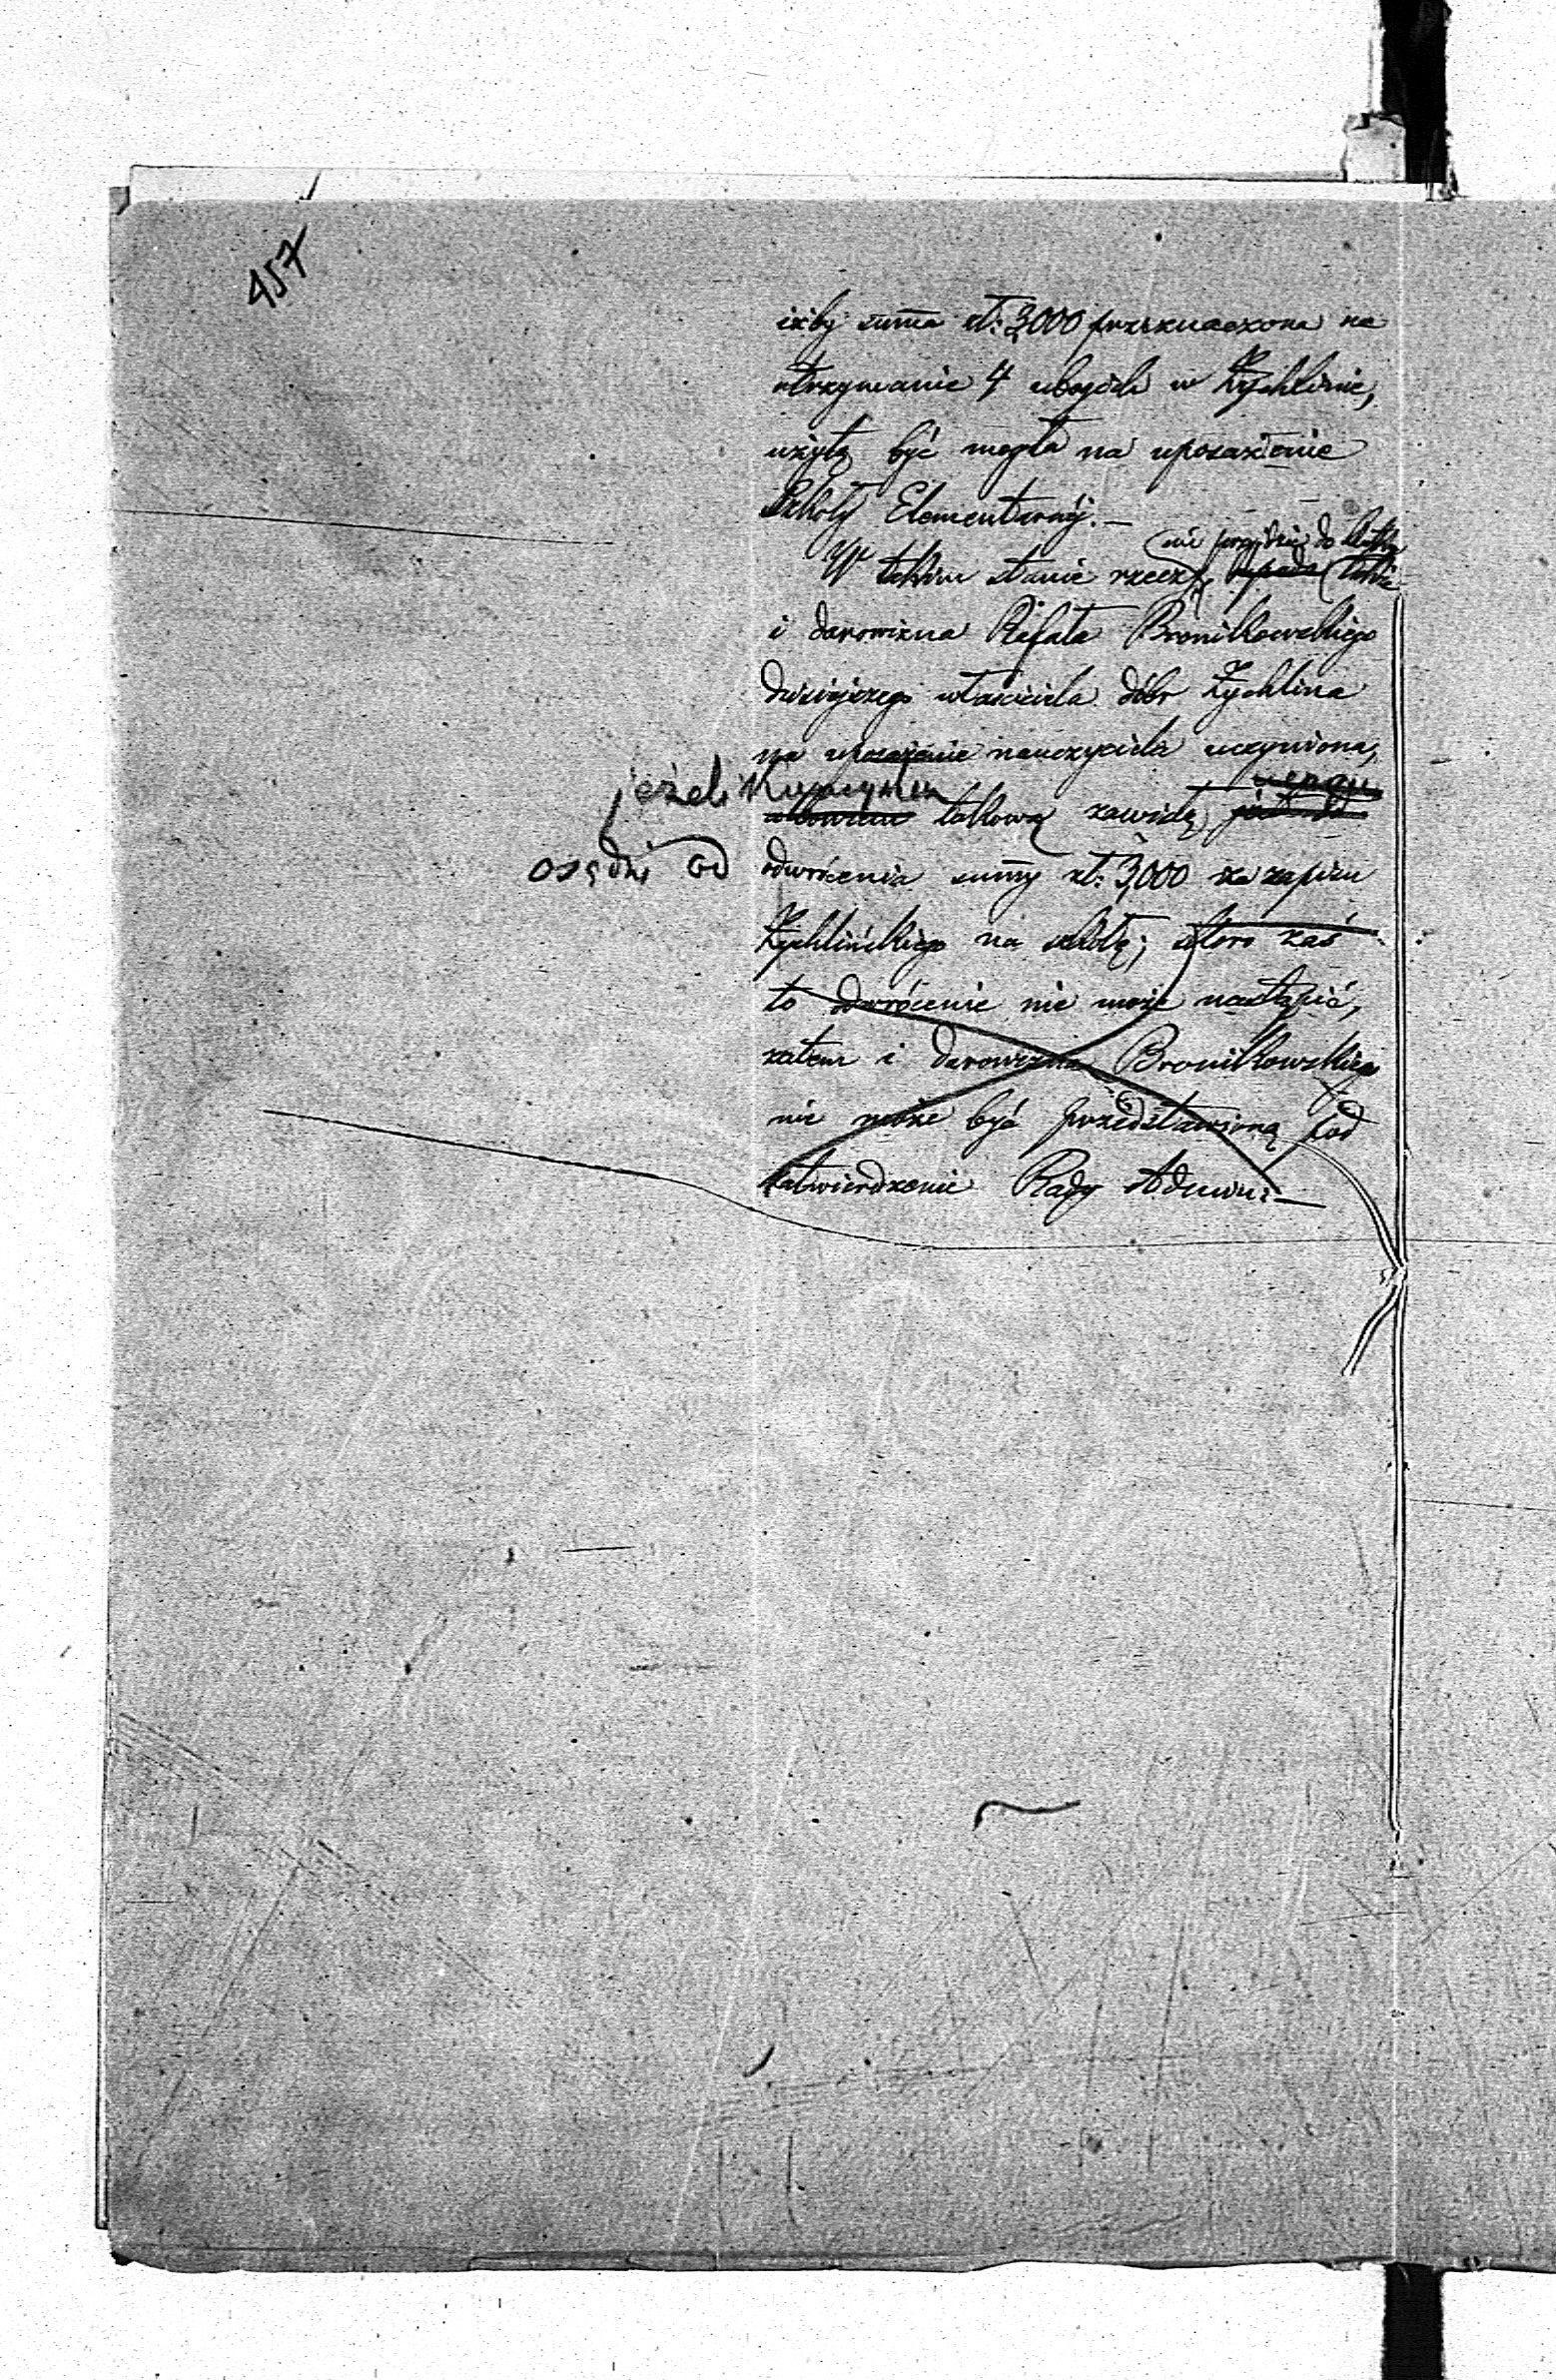 457
ixby summa zł: 3,000 przeznaczona na
utrzymanie 4 ubogich w Zychlinie,
użytą być mogła na uposażenie
Szkoły Elementarnéj. —
nie przyjdzie do skutku
W takim stanie rzeczy, upada także
i darowizna Rafała Bronikowskiego
dzisiejszego właściciela dóbr Zychlina
na uposażenie nauczyciela uczyniona,
jeżeli
takową zawisłą jest od
osądzi od
odwrócenia summy zł: 3,000 z zapisu
Zychlińskiego na szkołę; skoro zaś
to odwrócenie nie może nastąpić,
zatem i darowizna Bronikowskiego
nie może być przedstawioną pod
zatwierdzenie Rady Admin: —